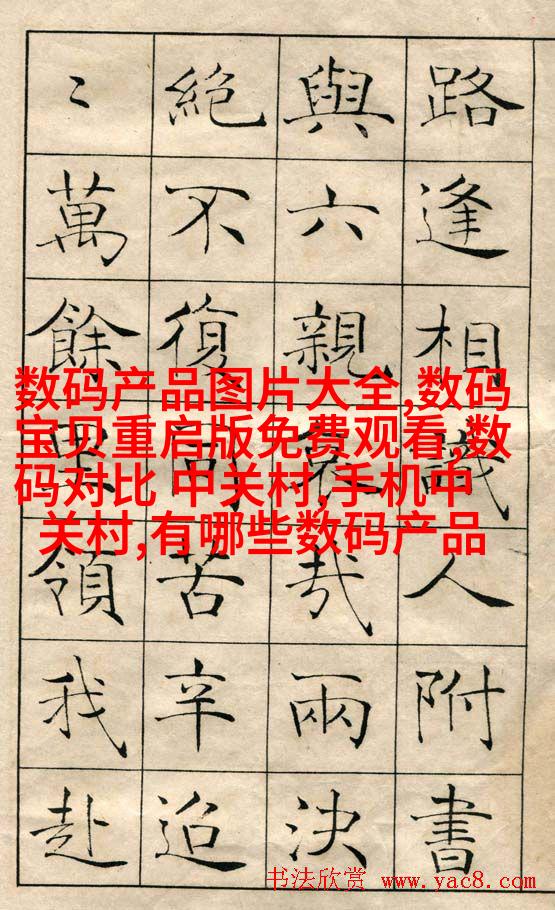 路逢相識人附書
與六親哀哉兩決
絕不復同苦辛迢
〻萬餘里領我赴
数码产品图片大全,数码
宝贝重启版免费观看,数
码对比 中关村,手机中
关村,有哪些数码产品
书法欣赏 www.yac8.com